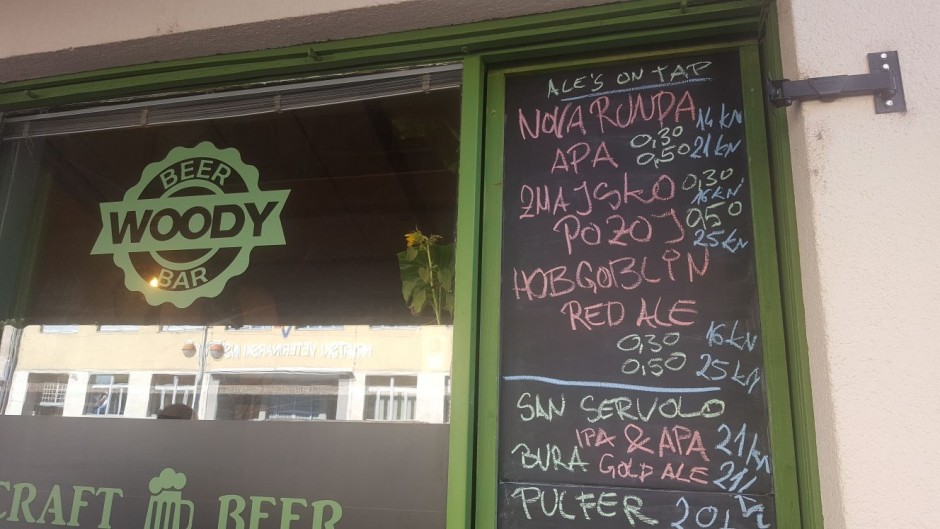 BEER
WOODY
BAR
CRAFT BEER
ALE'S ON TAP
NOVA RUNDA 14 KN
APA 0,30
0,50 21 KN
ZMAJSKO 0,30
16 KN
POZOJ 0,50
25 KN
HOBGOBLIN
RED ALE
0,30 16 KN
0,50 25 KN
SAN SERVOLO
IPA & APA 21 KN
BURA GOLD ALE 21 KN
PULFER